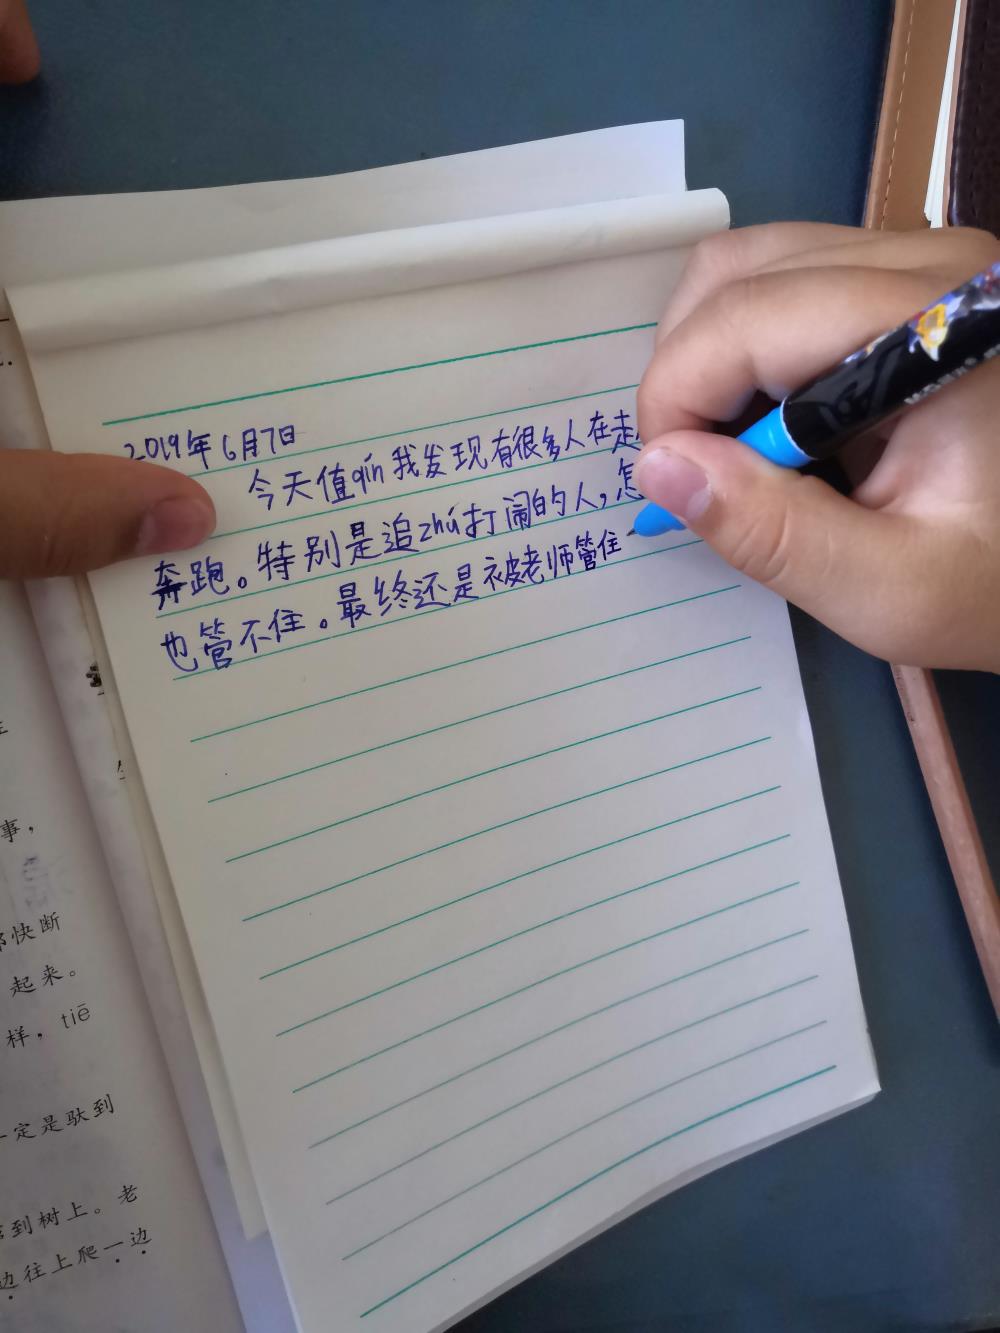 2019年6月7日
今天值qín我发现有很多人在走
奔跑。特别是追zhú打闹的人，怎
也管不住。最终还是被老师管住
事，
快断
起来。
样，tiē
一定是驮到
到树上。老
边往上爬一边